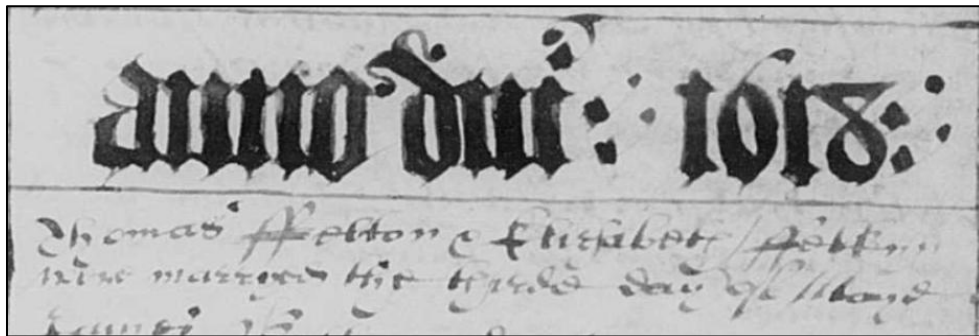 anno dni : 1618 :
Thomas ffelton & Elizabeth ffelton
were married the thirde day of Maye